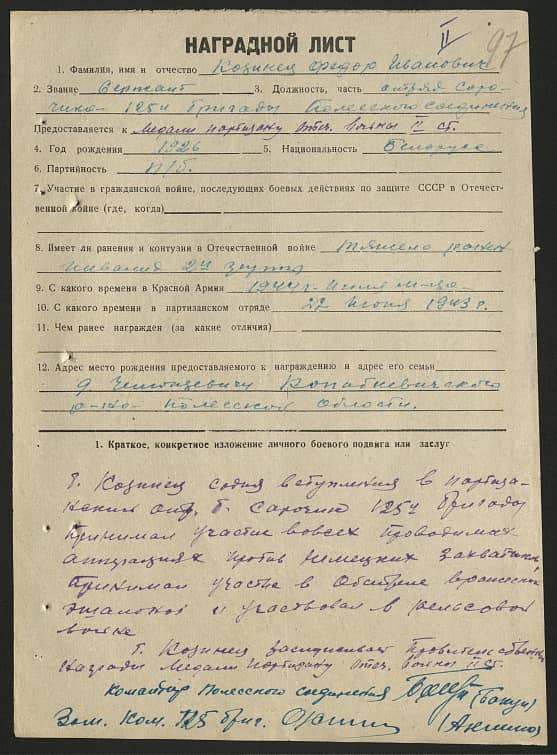 II
97
НАГРАДНОЙ ЛИСТ
1. Фамилия, имя и отчество Козинец Федор Иванович
2. Звание Сержант 3. Должность, часть отряд Соро-
чика - 125й бригады Полесского соединения
Предоставляется к Медали партизану Отеч. войны II ст.
4. Год рождения 1926 5. Национальность Белорус
6. Партийность п/б.
7. Участие в гражданской войне, последующих боевых действиях по защите СССР в Отечест-
венной войне (где, когда)
8. Имеет ли ранения и контузии в Отечественной войне тяжело ранен
инвалид 2й группы
9. С какого времени в Красной Армии 1944 г. Июля м-ца
10. С какого времени в партизанском отряде 22 Июня 1943 г.
11. Чем ранее награжден (за какие отличия)
12. Адрес место рождения предоставляемого к награждению и адрес его семьи
д. Копаткевичского
р-на Полесской Области.
1. Краткое, конкретное изложение личного боевого подвига или заслуг
Т. Козинец со дня вступления в партиза-
нский отр. Сорочика 125й бригады
принимал участие во всех проводимых
операциях против немецких захватчиков,
принимал участие в обстреле вражеских
эшалонов и участвовал в рельсовой
войне
Т. Козинец заслуживает Правительственной
награды Медали Партизану Отеч. войны II ст.
Командир Полесского соединения
Зам. ком. 125 бриг.